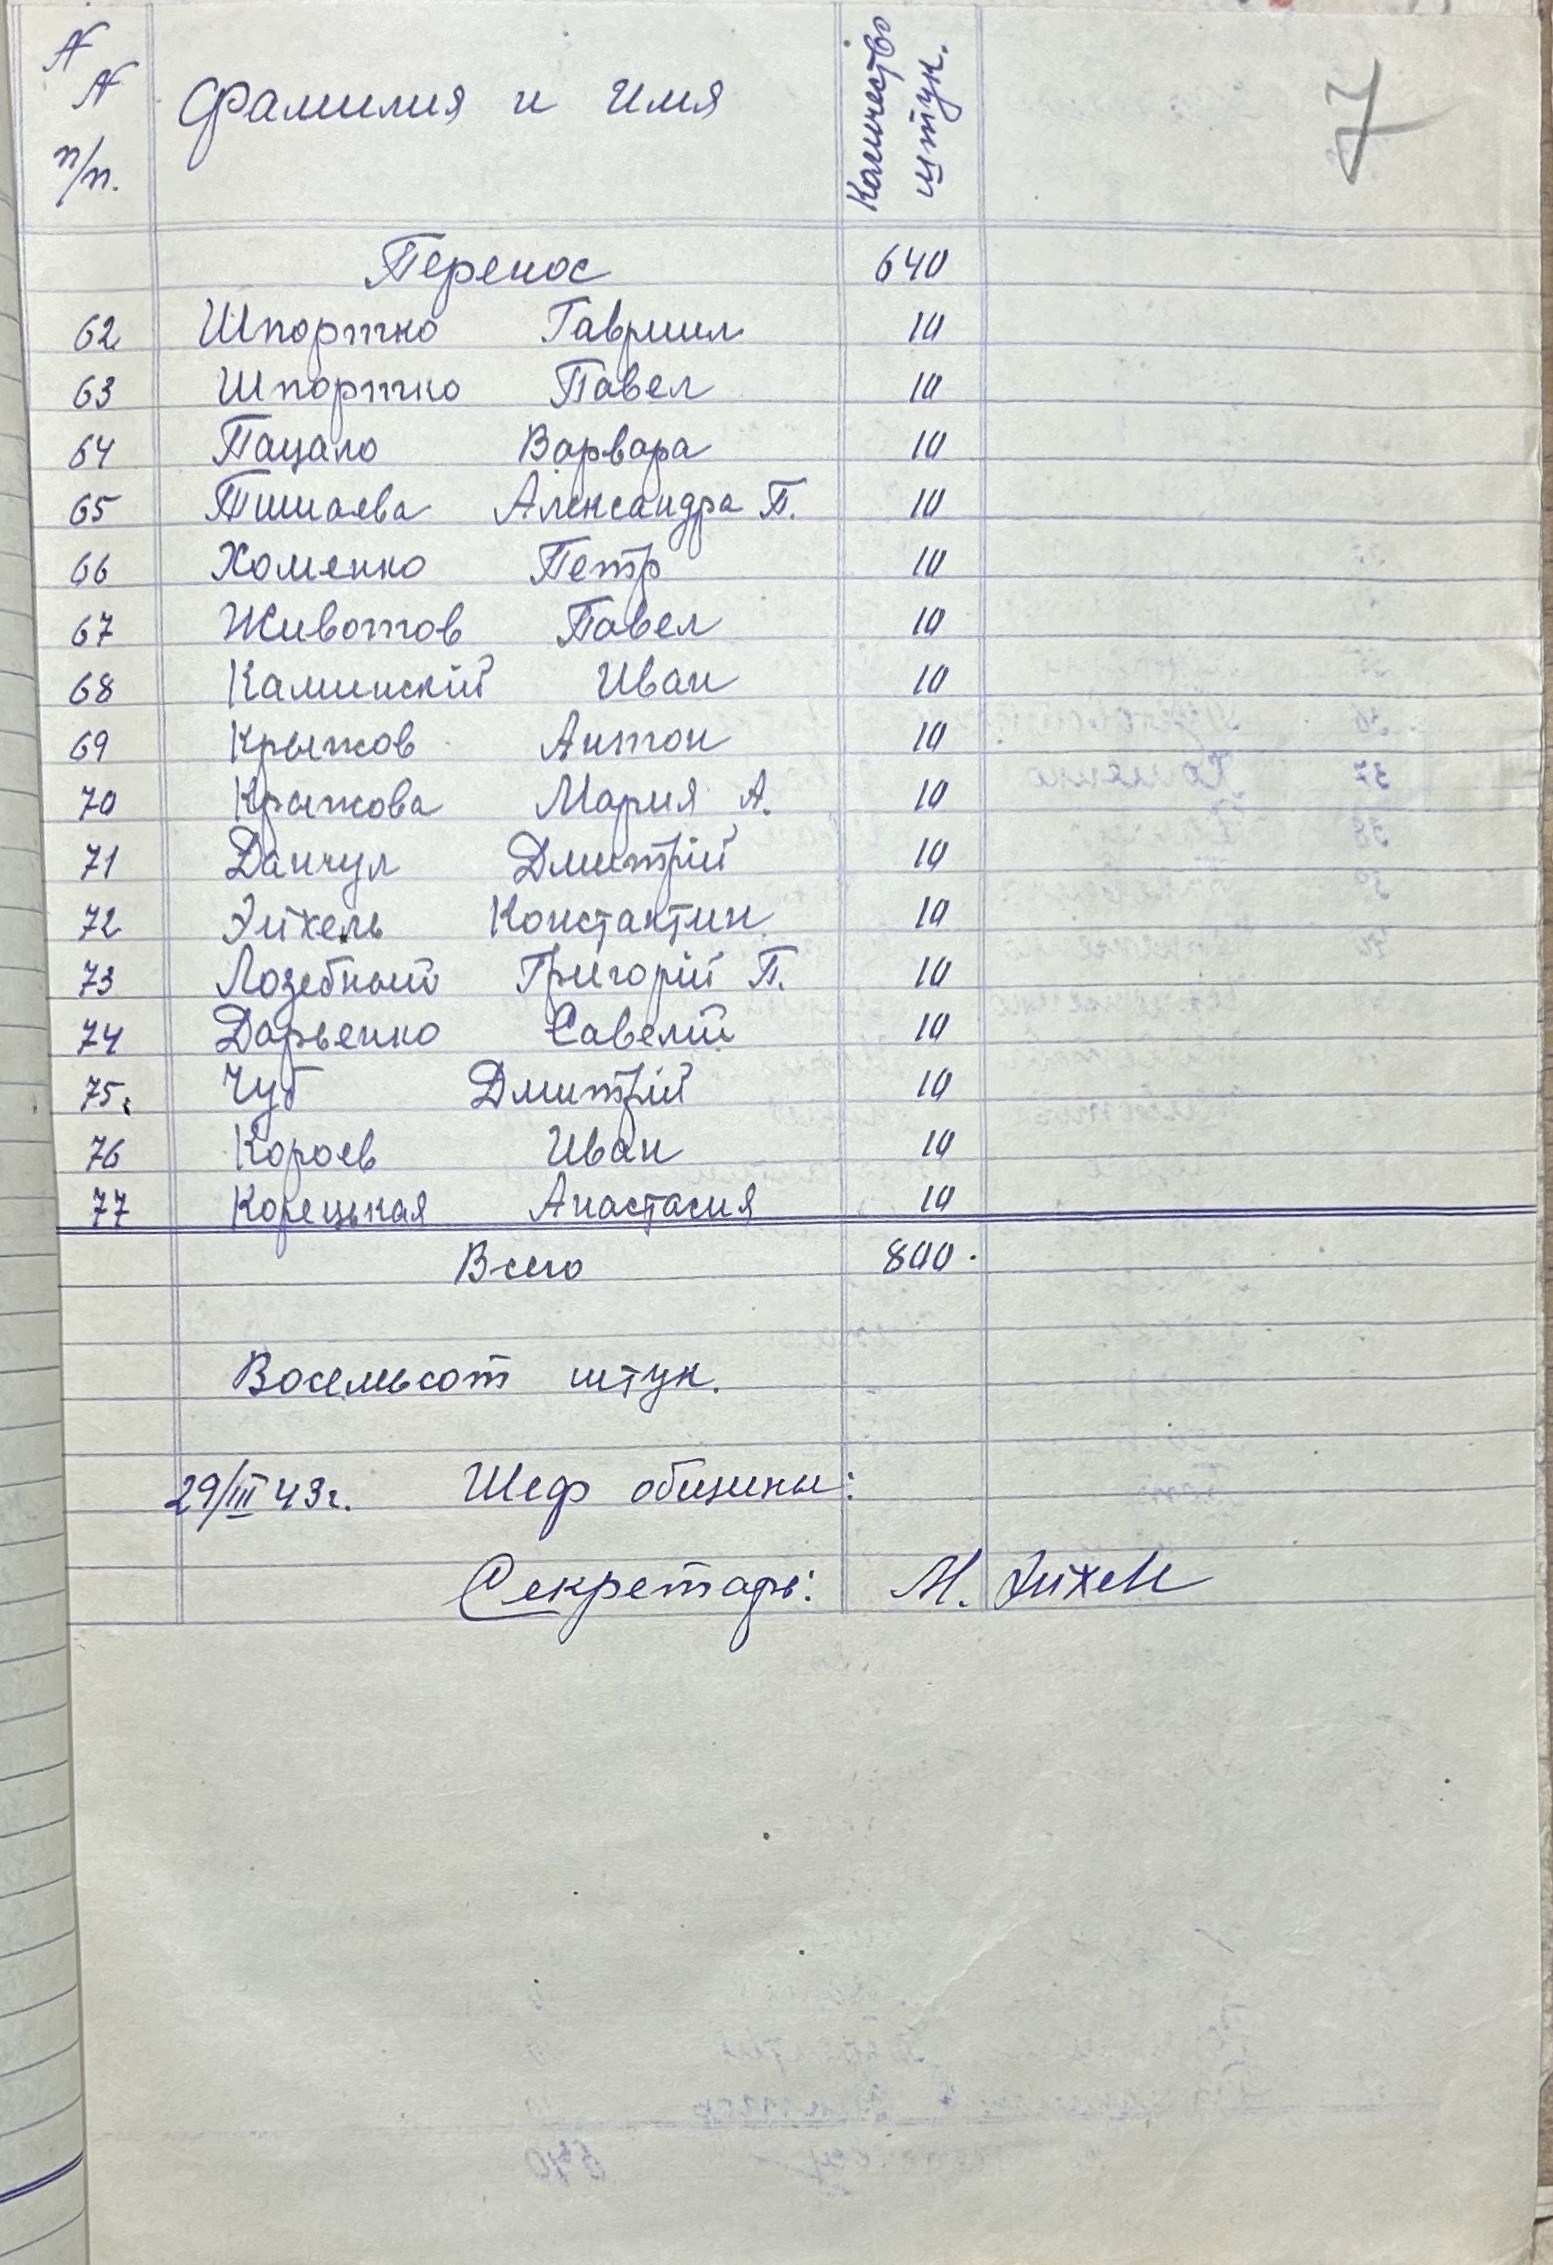 7
№ № п/п. Фамилия и Имя Количество штук.
Перенос 640
62 Шпортко Гавриил 10
63 Шпортко Павел 10
64 Пацало Варвара 10
65 Александра П. 10
66 Хоменко Петр 10
67 Животов Павел 10
68 Каминскій Иван 10
69 Крыжов Антон 10
70 Крыжова Мария А. 10
71 Данчул Дмитрій 10
72 Эйхель Константин 10
73 Лозебный Григорій П. 10
74 Дарьенко Савелій 10
75. Чуб Дмитрій 10
76 Короев Иван 10
77 Корецькая Анастасия 10
Всего 800.
Восемьсот штук.
29/III 43г. Шеф общины:
Секретарь: М. Эйхель